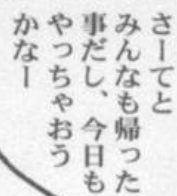 さーてと
みんなも帰った
事だし、今日も
やっちゃおう
かなー